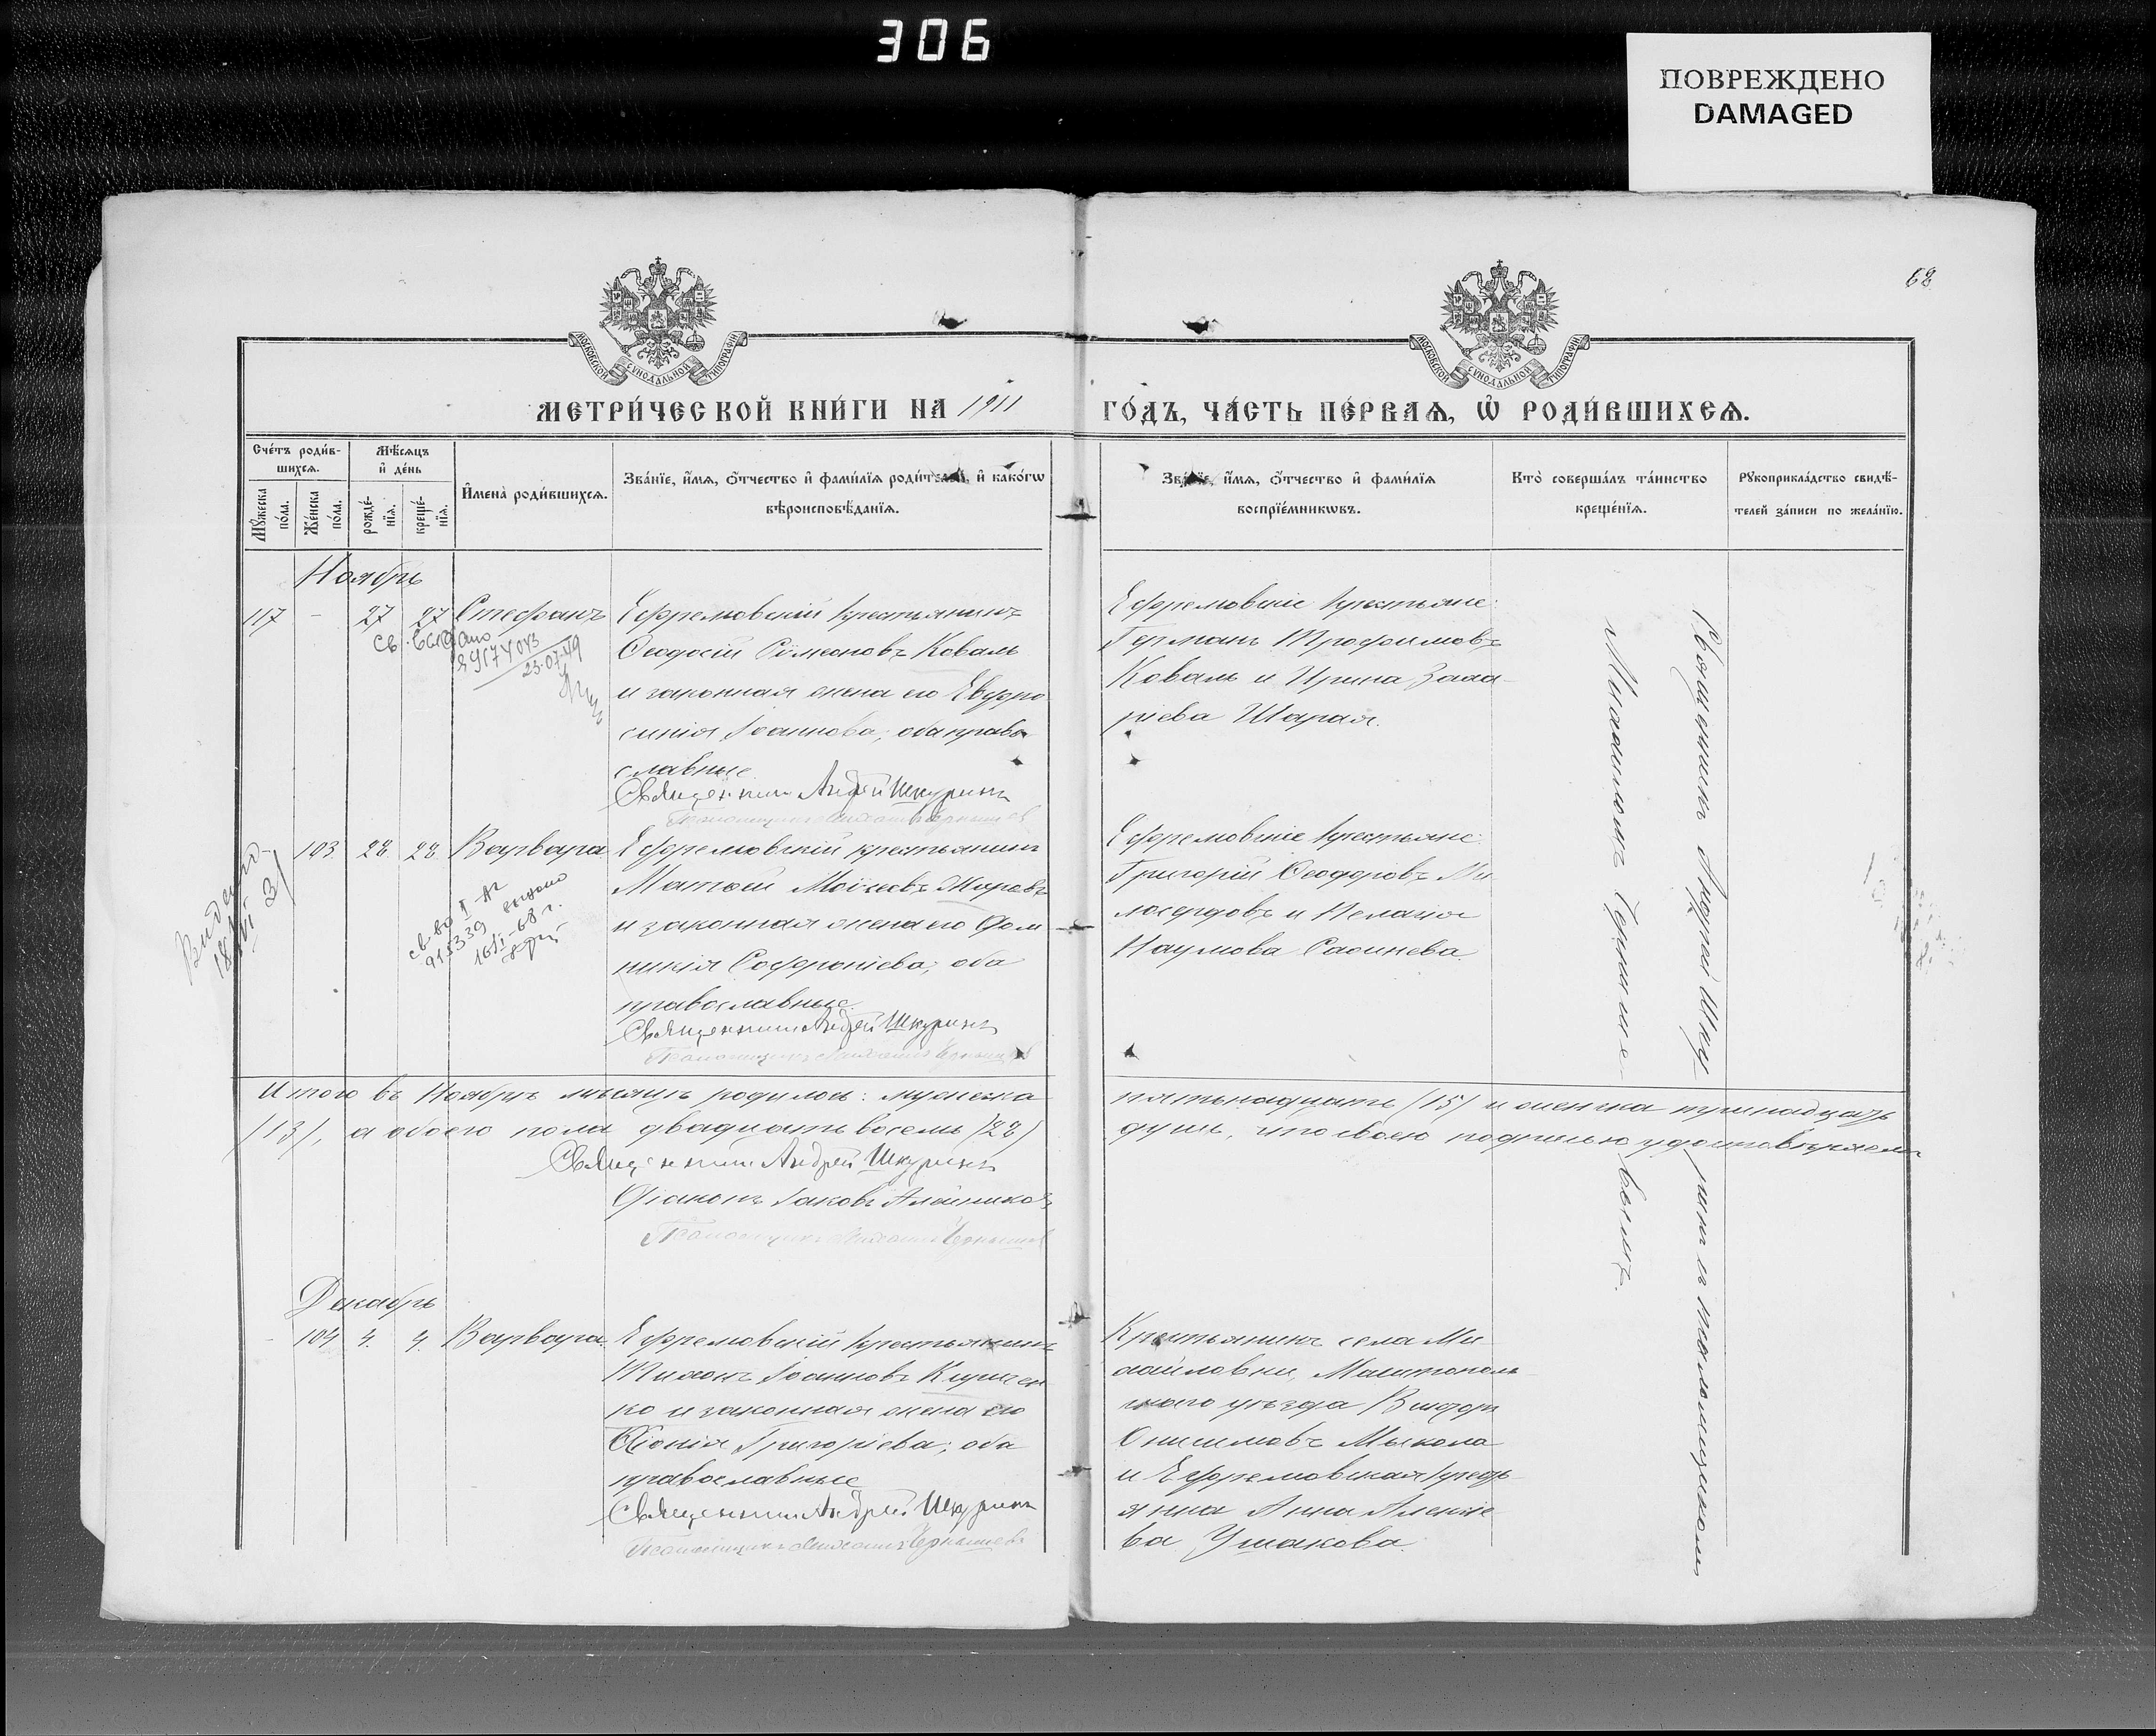 306
ПОВРЕЖДЕНО
DAMAGED
68
МОСКОВСКОЙ СѴНОДАЛЬНОЙ ТИПОГРАФІИ
МОСКОВСКОЙ СѴНОДАЛЬНОЙ ТИПОГРАФІИ
МЕТРИ́ЧЕСКОЙ КНИ́ГИ НА 1911 ГО́ДЪ, ЧА́СТЬ ПЕ́РВАѦ, Ѡ РОДИ́ВШИХСѦ.
Сче́тъ роди́в-
шихсѧ.
Мѣ́сѧцъ
и҆ де́нь
Мꙋ́жеска по́ла.
Же́нска по́ла.
рожде́-
нїѧ.
креще́-
нїѧ.
И҆мена̀ роди́вшихсѧ.
Зва́нїе, и҆́мѧ, ѻ҆́тчество и҆ фами́лїѧ роди́телей, и҆ како́гѡ
вѣроисповѣ́данїѧ.
Зва́нїе, и҆́мѧ, ѻ҆́тчество и҆ фами́лїѧ
воспрїе́мникѡвъ.
Кто̀ соверша́лъ та́инство
креще́нїѧ.
Рꙋкоприкла́дство свидѣ́-
телей за́писи по жела́нїю.
Ноябрь
117 - 27 27 Стефанъ
Св. выдано
23.07.49
Ефремовскій крестьянинъ
Ѳеодосій Симеоновъ Коваль
и законная жена его Евфро
синія Іоаннова; оба право
славные
Священникъ Андрей Шкуринъ
Псаломщикъ Михаилъ Чернышевъ
Ефремовскіе крестьяне:
Германъ Трофимовъ
Коваль и Ирина Заха
ріева Шарая.
Священникъ Андрей Шку
ринъ съ псаломщикомъ
Михаиломъ Черныше
вымъ.
103. 28 28 Варвара
Видано
св-во
выдано
Ефремовскій крестьянинъ
Матѳей Моисеевъ Жировъ
и законная жена его Дом
никія Софроніева; оба
православные
Священникъ Андрей Шкуринъ
Псаломщикъ Михаилъ Чернышевъ
Ефремовскіе крестьяне:
Григорій Ѳеодоровъ Ми
лосердовъ и Пелагія
Наумова
Итого въ Ноябрѣ мѣсяцѣ родилось: мужеска пятьнадцать /15/ и женска тринадцать
/13/, а обоего пола двадцать восемь /28/ душъ, что своею подписью удостовѣряемъ
Священникъ Андрей Шкуринъ
Діаконъ Іаковъ Алейниковъ
Псаломщикъ Михаилъ Чернышевъ
Декабрь
- 104 4. 4. Варвара.
Ефремовскій крестьянинъ
Тихонъ Іоанновъ Кущен
ко и законная жена его
Хіонія Григоріева; оба
православные
Священникъ Андрей Шкуринъ
Псаломщикъ Михаилъ Чернышевъ
Крестьянинъ села Ми
хайловки, Мелитополь
скаго уѣзда Викторъ
Онисимовъ Мыкола
и Ефремовская кресть
янка Анна Алексѣе
ва Ушакова.